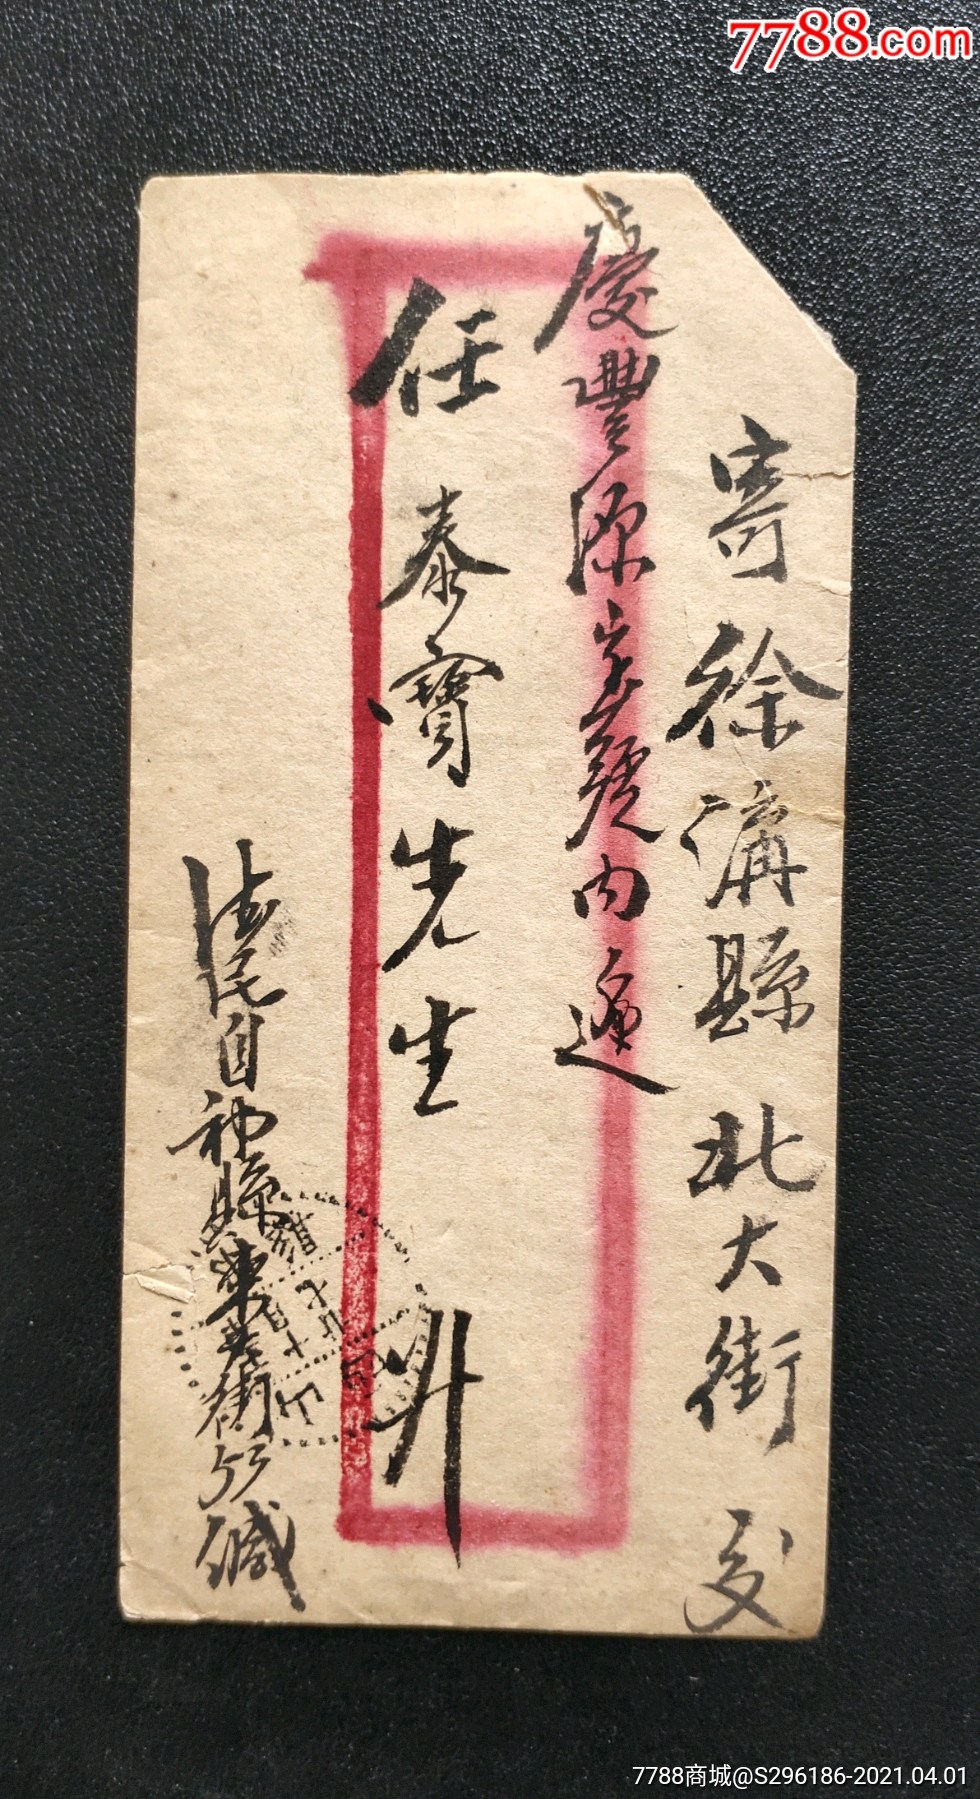 7788.com
寄徐溝縣北大街交
慶豐源寶號內逓
任泰寶先生 升
德民自祁縣東大街53號緘
7788商城@S296186-2021.04.01